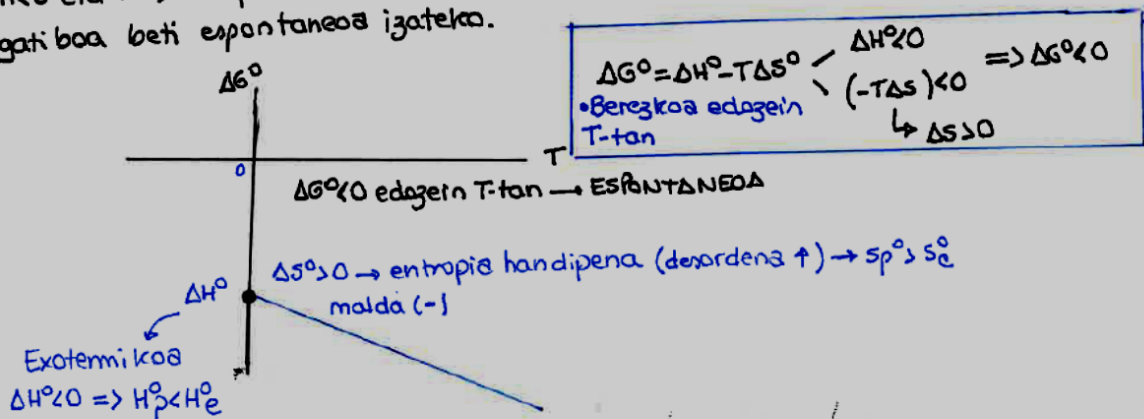 gatiboa beti espontaneoa izateko.
ΔG⁰=ΔH⁰-TΔS⁰
ΔH⁰<0
(-TΔS)<0
=> ΔG⁰<0
↳ ΔS>0
•Berezkoa edozein
T-tan
ΔG⁰
0
T
ΔG⁰<0 edozein T-tan → ESPONTANEOA
ΔS⁰>0 → entropia handipena (desordena ↑) → Sp⁰> Se⁰
malda (-)
ΔH⁰
Exotermikoa
ΔH⁰<0 => Hp⁰<He⁰